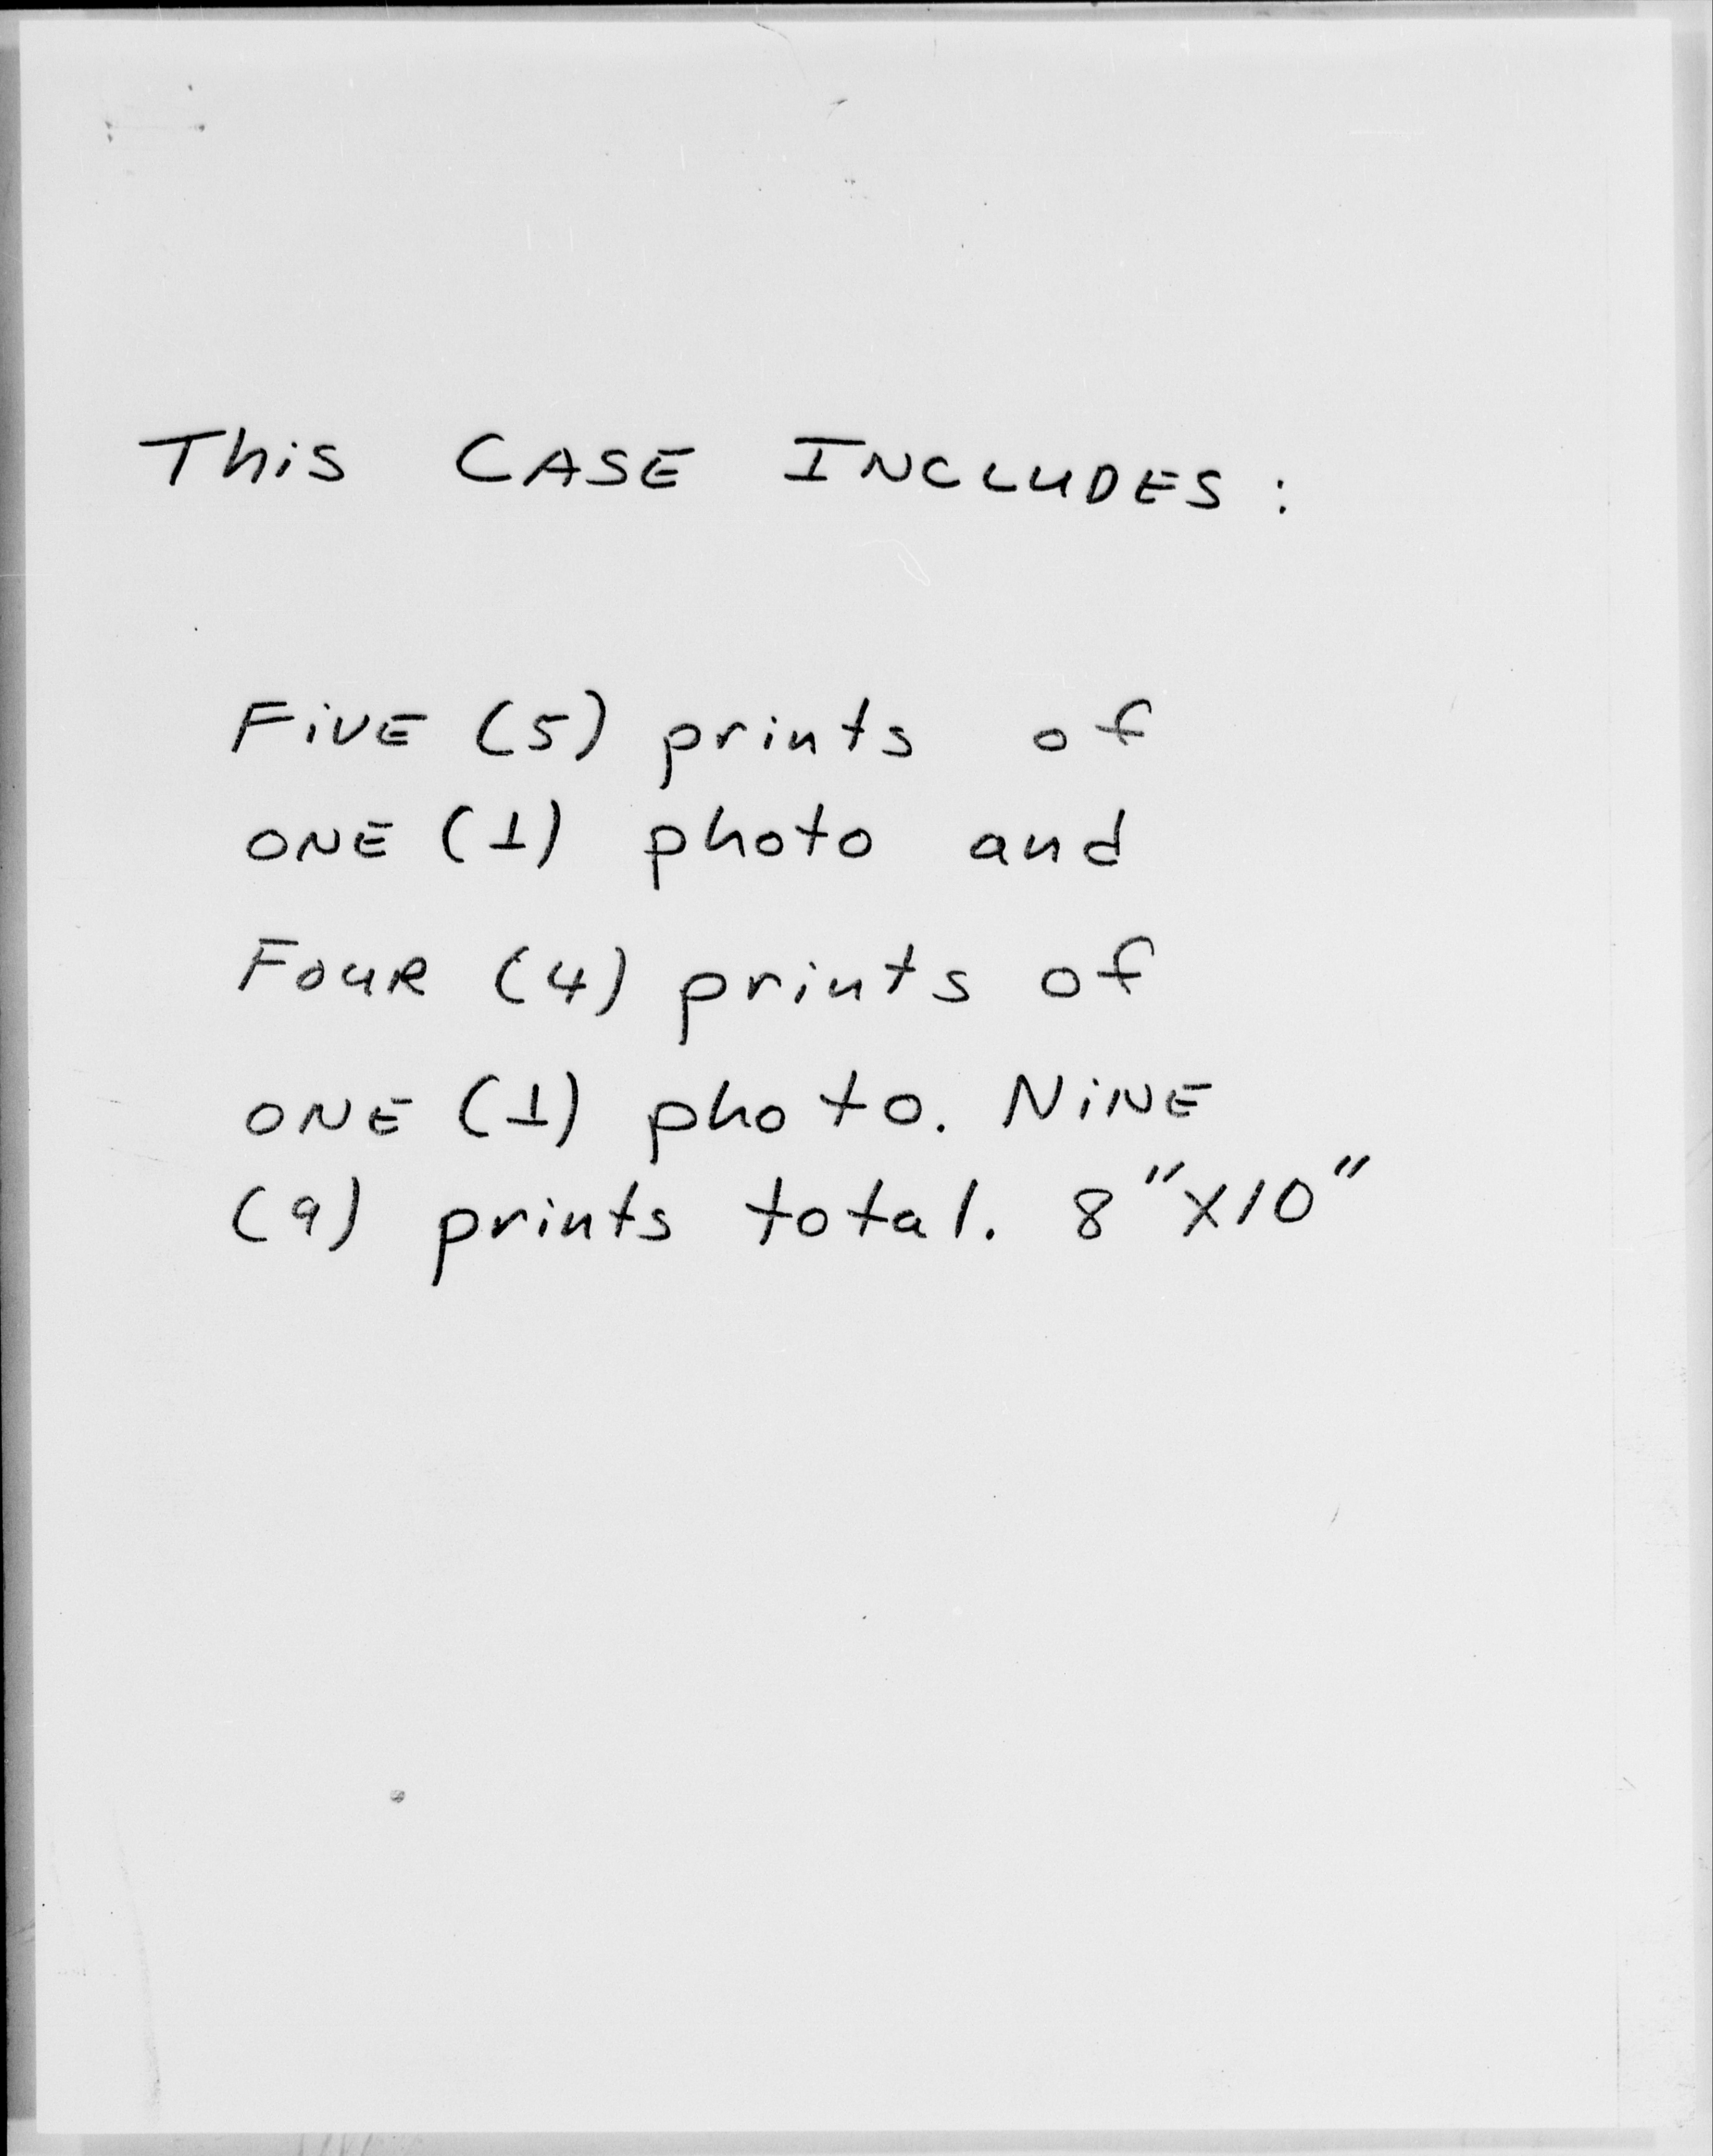 This CASE INCLUDES:
FiVE (5) prints of
ONE (1) photo and
FOUR (4) prints of
ONE (1) photo. NiNE
(9) prints total. 8"X10"